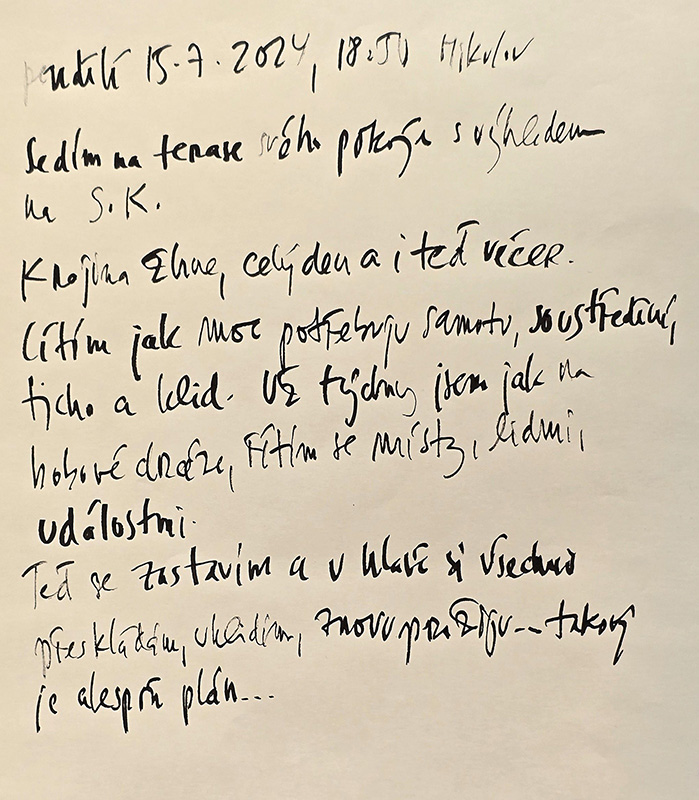 pondělí 15.7.2024, 18:50 Mikulov
Sedím na terase svého pokoje s výhledem
na S.K.
Krajina žhne, celý den a i teď večer.
Cítím jak moc potřebuju samotu, soustředění,
ticho a klid. Už týdny jsem jak na
bobové dráze, řítím se místy, lidmi,
událostmi.
Teď se zastavím a v hlavě si všechno
přeskládám, uklidím, znovu prožiju... takový
je alespoň plán...